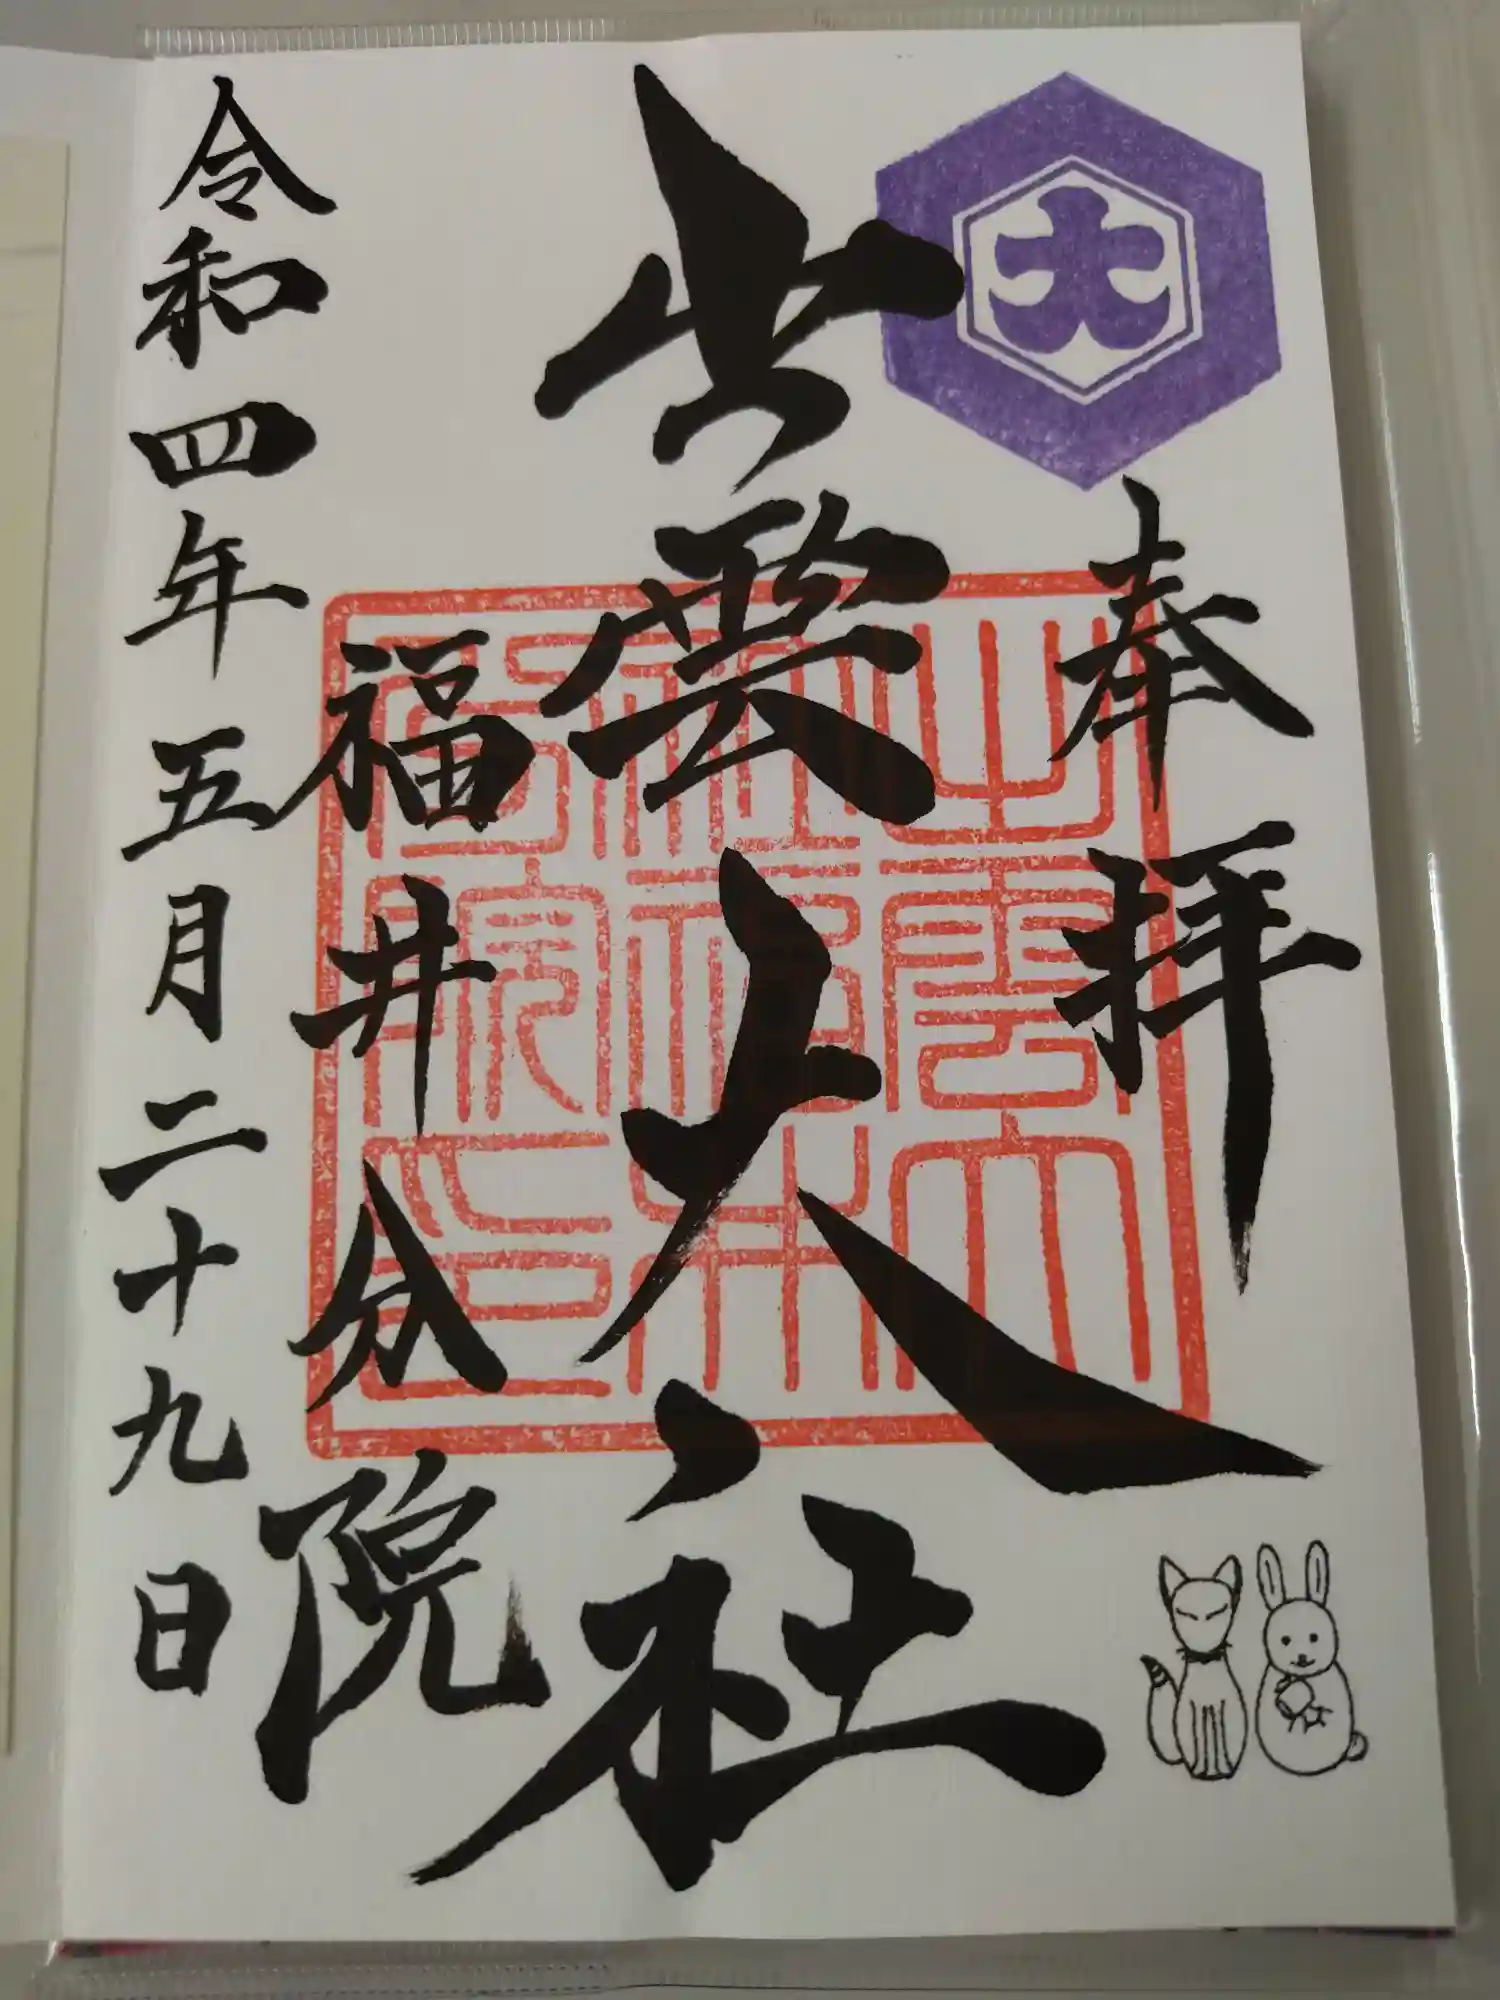 奉拝
出雲大社
福井分院
令和四年五月二十九日
大
出雲大
社福井
分院印